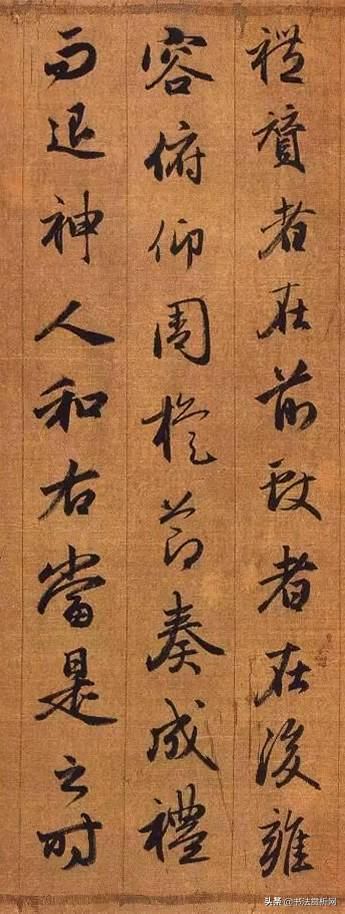 禮贊者在前殿者在後雍
容俯仰周旋節奏成禮
而退神人和右當是之時
头条 @书法赏析网